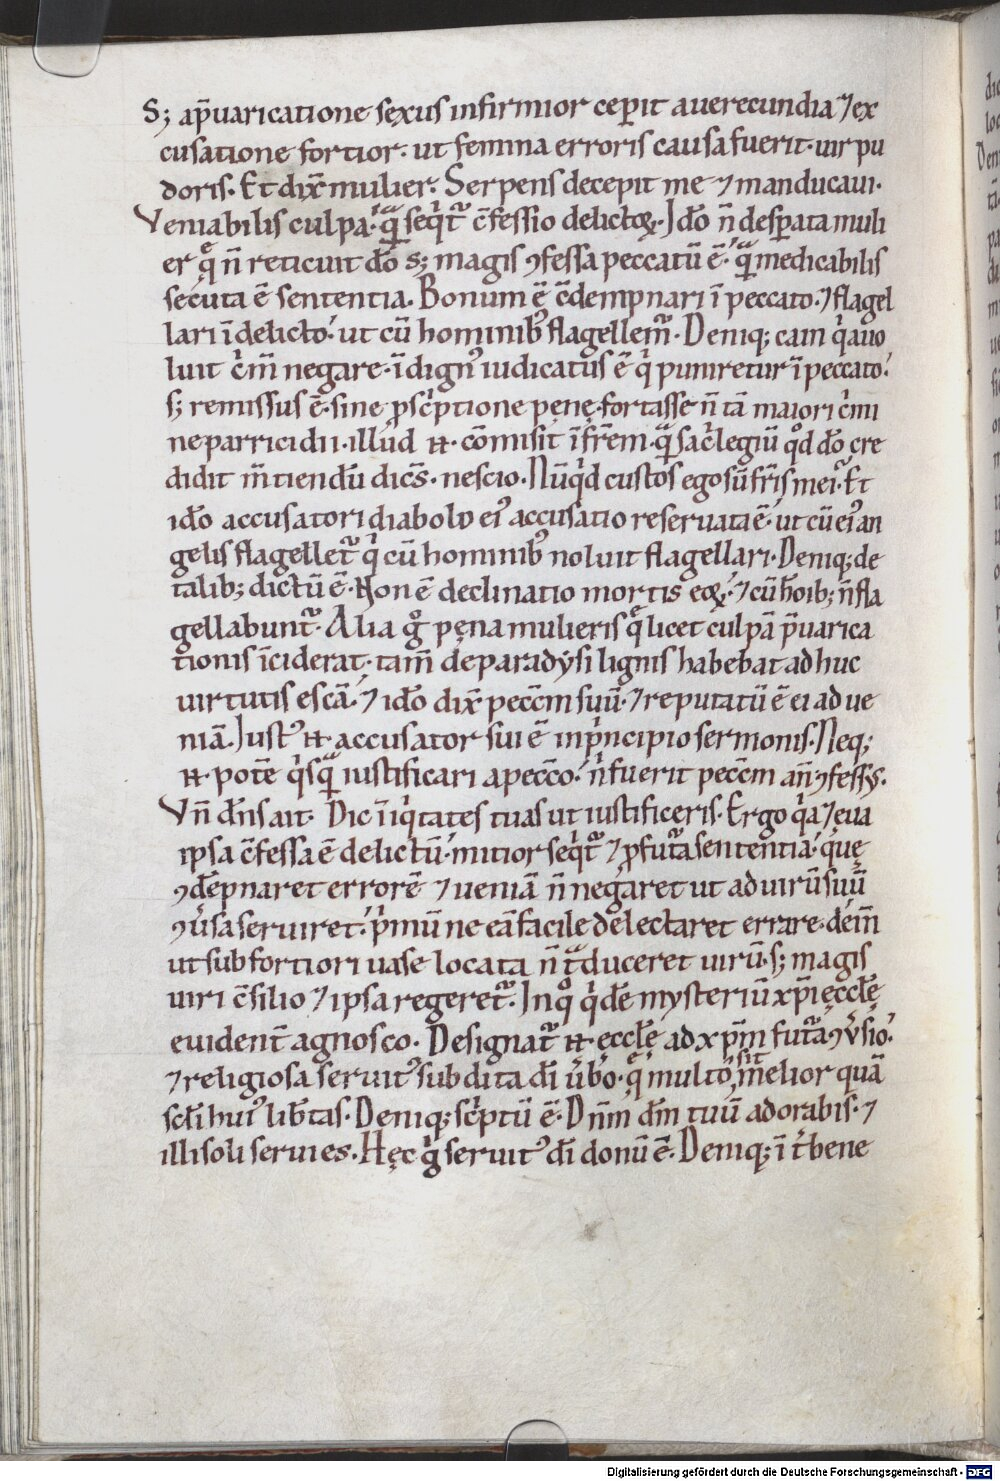 S; ap̄uaricatione sexus infirmior cep̄it auerecundia ⁊ ex
cusatione fortior· ut femina erroris causa fuerit· uir pu
doris. Et dix̄ mulier. Serpens decepit me ⁊ manducaui.
Veniabilis culpa· quā seqͥtᷣ c̄fessio delictoꝝ. Ido n̄ desꝑata muli
er q̄ n̄ reticuit do s; magis ꝯfessa peccatū ē· quā medicabilis
secuta ē sententia. Bonum ē c̄dempnari ī peccato. ⁊ flagel
lari ī delicto· ut cū hominibꝰ flagellem̄ᷣ. Deniq; cain qͥa uo
luit cͥm̄ negare· īdignꝰ iudicatus ē qͥ puniretur ī peccato·
s; remissus ē· sine p̱scͥptione pęnę· fortasse n̄ tā maiori cͥmi
ne parricidii· illud ͛n· cōmisit ī fr̄em· quā sacͥlegiū qd̊ do cre
didit m̄tiendū dicēs· nescio. Nūqͥd custos ego sū fr̄is mei· Et
ido accusatori diabolo eiꝰ accusatio reseruata ē· ut cū eiꝰ an
gelis flagelletᷣ qͥ cū hominibꝰ noluit flagellari· Deniq; de
talib; dictū ē. Non ē declinatio mortis eoꝝ· ⁊ cū hōib; n̄ fla
gellabuntᷣ. Alia g̊ pęna mulieris q̄ licet culpā p̄uarica
tionis īciderat· tam̄ de paradysi lignis habebat ad huc
uirtutis escā· ⁊ ido dix̄ pecc̄m suū· ⁊ reputatū ē ei ad ue
niā. Iustꝰ ͛n· accusator sui ē in pͥncipio sermonis. Neq;
͛n· potē qͥsquā iustificari a pecc̄o· n̄ fuerit pecc̄m an̄ ꝯfessꝰ.
Vn̄ dn̄s ait. Dic īiqͥtates tuas ut iustificeris. Ergo qͥa ⁊ eua
ipsa c̄fessa ē delictū· mitior seqͥtᷣ ⁊ ꝓfutᷣa sententia· quę
ꝯdēpnaret errorē ⁊ ueniā n̄ negaret ut ad uirū suū
ꝯuͥsa seruiret· pͥmū ne eā facile delectaret errare· dein̄
ut sub fortiori uase locata n̄ tᷓduceret uirū· s; magis
uiri c̄silio ⁊ ipsa regeretᷣ. In q̊ qͥdē mysteriū xp̄i ęccłę
euident̄ agnosco. Designatᷣ ͛n· eccłę ad xp̄m futᷣa ꝯuͥsio·
⁊ religiosa seruitꝰ subdita dī uͥbo· q̄ multo sit melior quā
scłi huiꝰ lib̄tas. Deniq; scͥptū ē. Dn̄m dm̄ tuū adorabis· ⁊
illi soli seruies. Hęc g̊ seruitꝰ dī donū ē. Deniq; ī tͥ bene